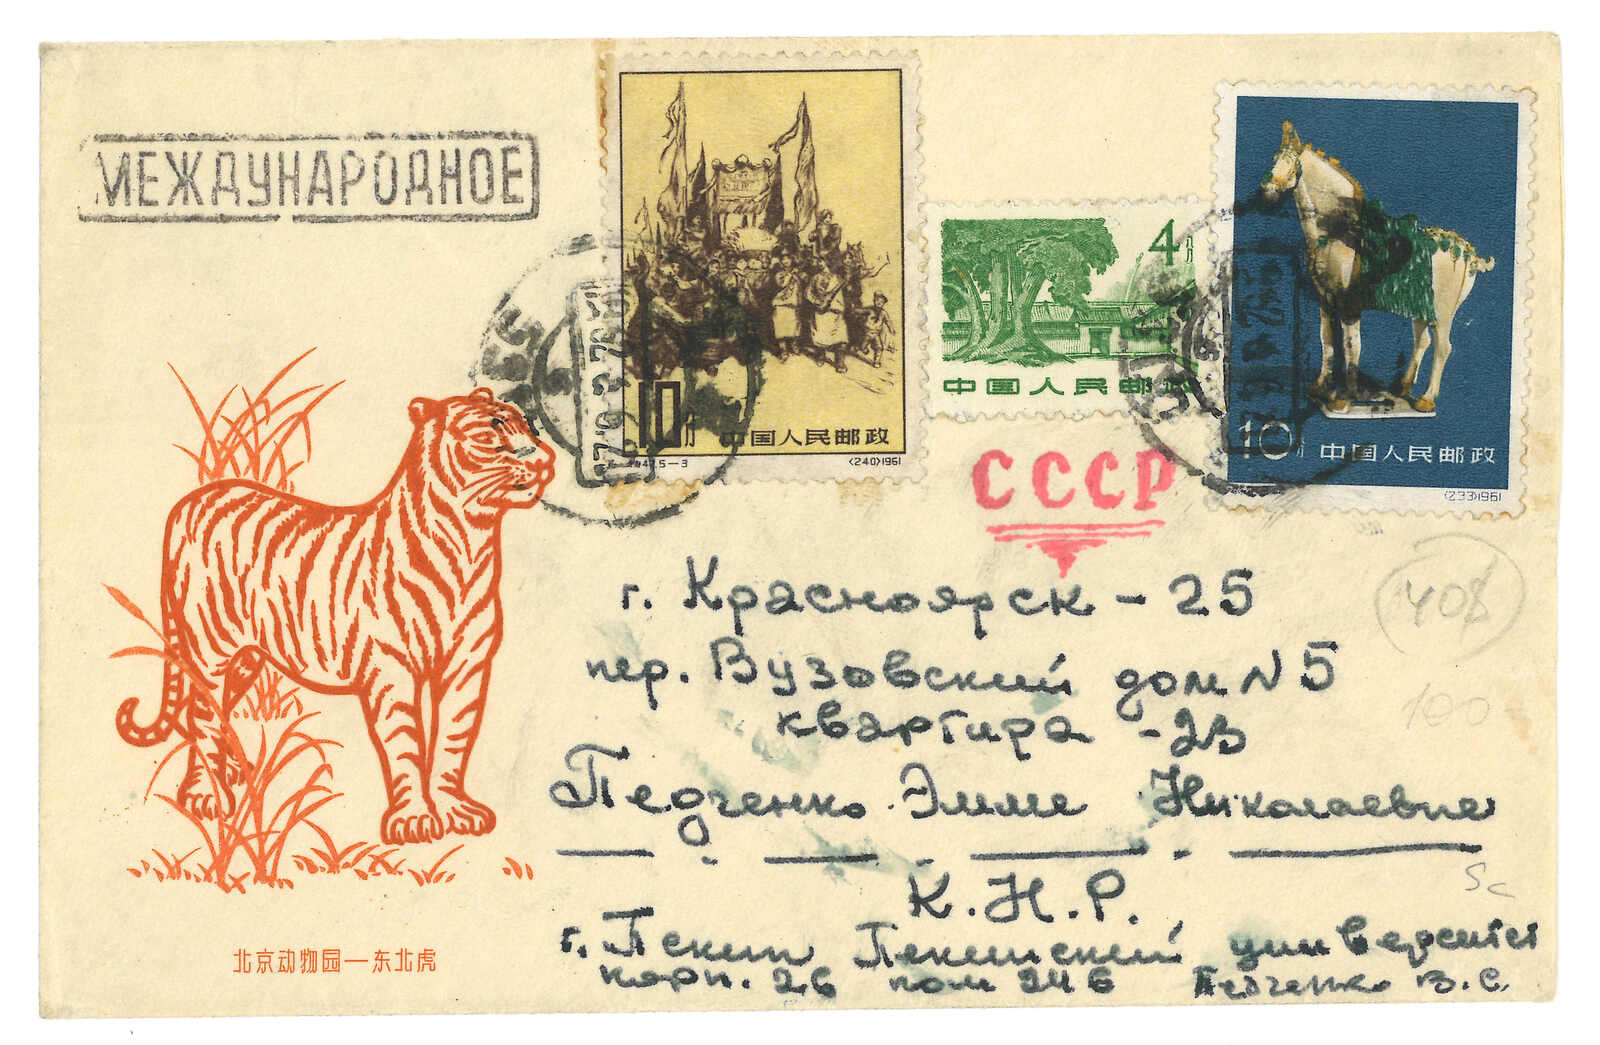 МЕЖДУНАРОДНОЕ
10分
中国人民邮政
5-3
(240)1961
4分
中国人民邮政
10分
中国人民邮政
(233)1961
СССР
г. Красноярск - 25
пер. Вузовский дом N 5
квартира - 23
Педченко Эмме Николаевне
К.Н.Р.
г. Пекин Пекинский университет
корп. 26 пом 246 Педченко В.С.
北京动物园—东北虎
100